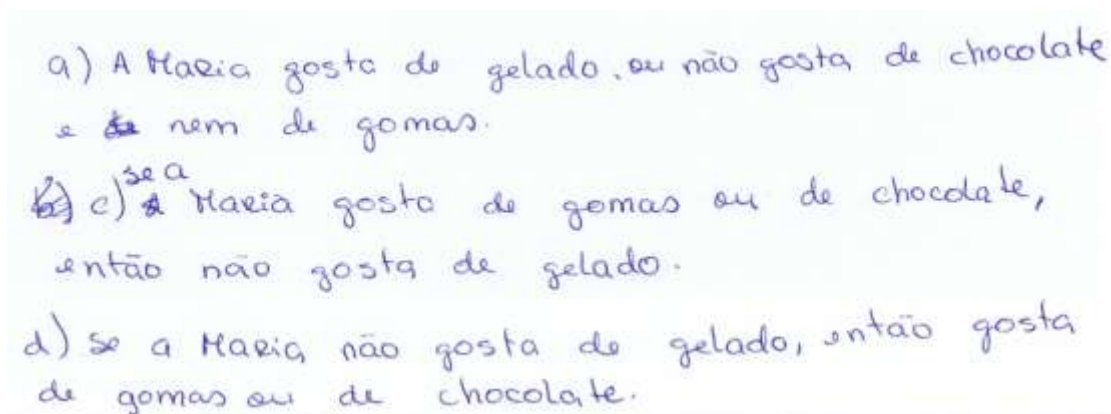 a) A Maria gosta de gelado, ou não gosta de chocolate
e nem de gomas.
c) se a Maria gosta de gomas ou de chocolate,
então não gosta de gelado.
d) se a Maria não gosta de gelado, então gosta
de gomas ou de chocolate.